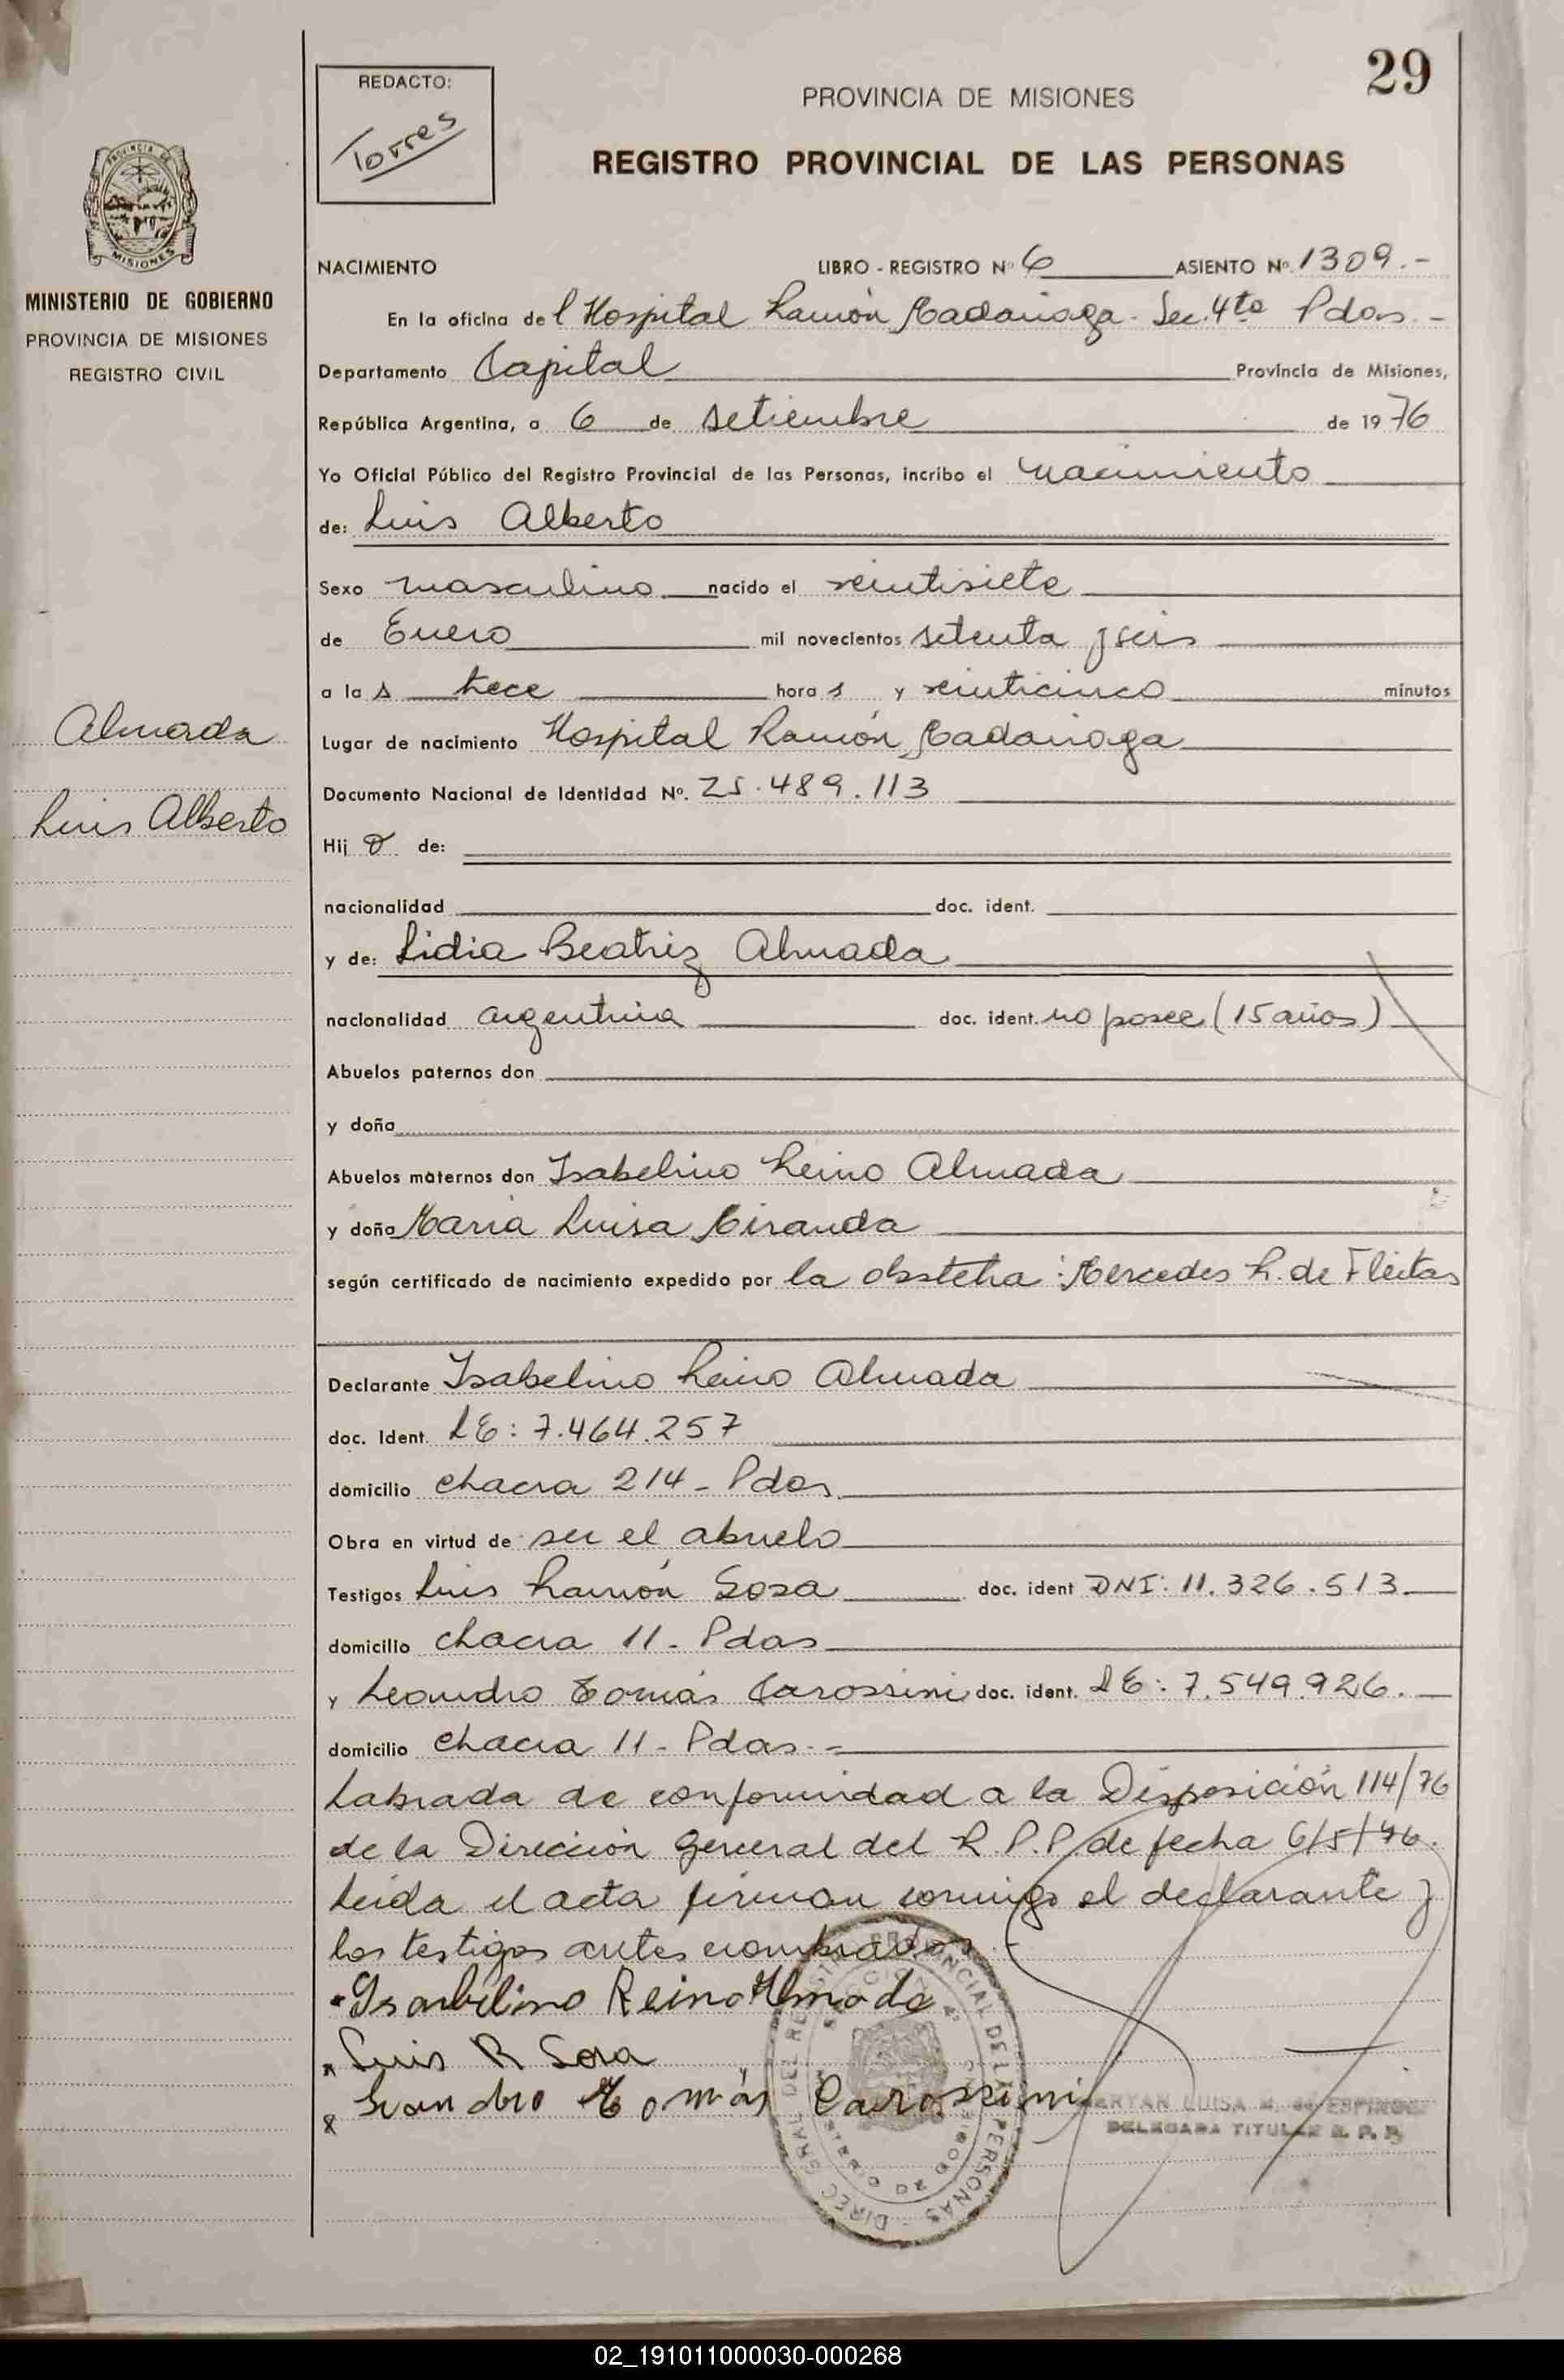 29
REDACTO:
Torres
PROVINCIA DE MISIONES
REGISTRO PROVINCIAL DE LAS PERSONAS
PROVINCIA DE
MISIONES
MINISTERIO DE GOBIERNO
PROVINCIA DE MISIONES
REGISTRO CIVIL
Almada
Luis Alberto
NACIMIENTO LIBRO - REGISTRO Nº 6 ASIENTO Nº. 1309.-
En la oficina del Hospital Ramón Madariaga. Sec. 4ta Pdas.-
Departamento Capital Provincia de Misiones,
República Argentina, a 6 de setiembre de 1976
Yo Oficial Público del Registro Provincial de las Personas, incribo el nacimiento
de: Luis Alberto
Sexo masculino nacido el veintisiete
de Enero mil novecientos setenta y seis
a las trece horas y veinticinco minutos
Lugar de nacimiento Hospital Ramón Madariaga
Documento Nacional de Identidad Nº. 25.489.113
Hijo de:
nacionalidad doc. ident.
y de: Lidia Beatriz Almada
nacionalidad argentina doc. ident. no posee (15 años)
Abuelos paternos don
y doña
Abuelos maternos don Isabelino Reino Almada
y doña María Luisa Miranda
según certificado de nacimiento expedido por la obstetra: Mercedes R. de Fleitas
Declarante Isabelino Reino Almada
doc. Ident. LE: 7.464.257
domicilio chacra 214 - Pdas
Obra en virtud de ser el abuelo
Testigos Luis Ramón Sosa doc. ident DNI: 11.326.513
domicilio chacra 11 - Pdas
y Leandro Tomás Carossini doc. ident. LE: 7.549.926.
domicilio chacra 11 - Pdas.-
Labrada de conformidad a la Disposición 114/76
de la Dirección General del R.P.P. de fecha 6/5/76.
Leída el acta firman conmigo el declarante y
los testigos antes nombrados.-
Isabelino Reino Almada
Luis R Sosa
Leandro Tomás Carossini
LUISA M. de ESPINOSA
DELEGADA TITULAR R. P. P.
02_191011000030-000268